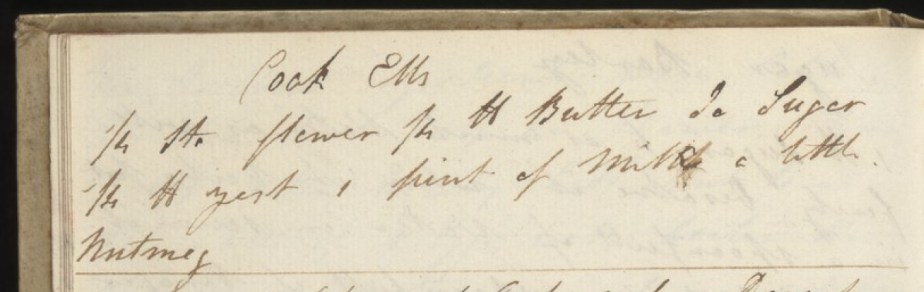 Cook Ells
1/4 St. flower 1/4 lb Butter Do Suger
1/4 lb yest 1 pint of Milk a little
Nutmeg